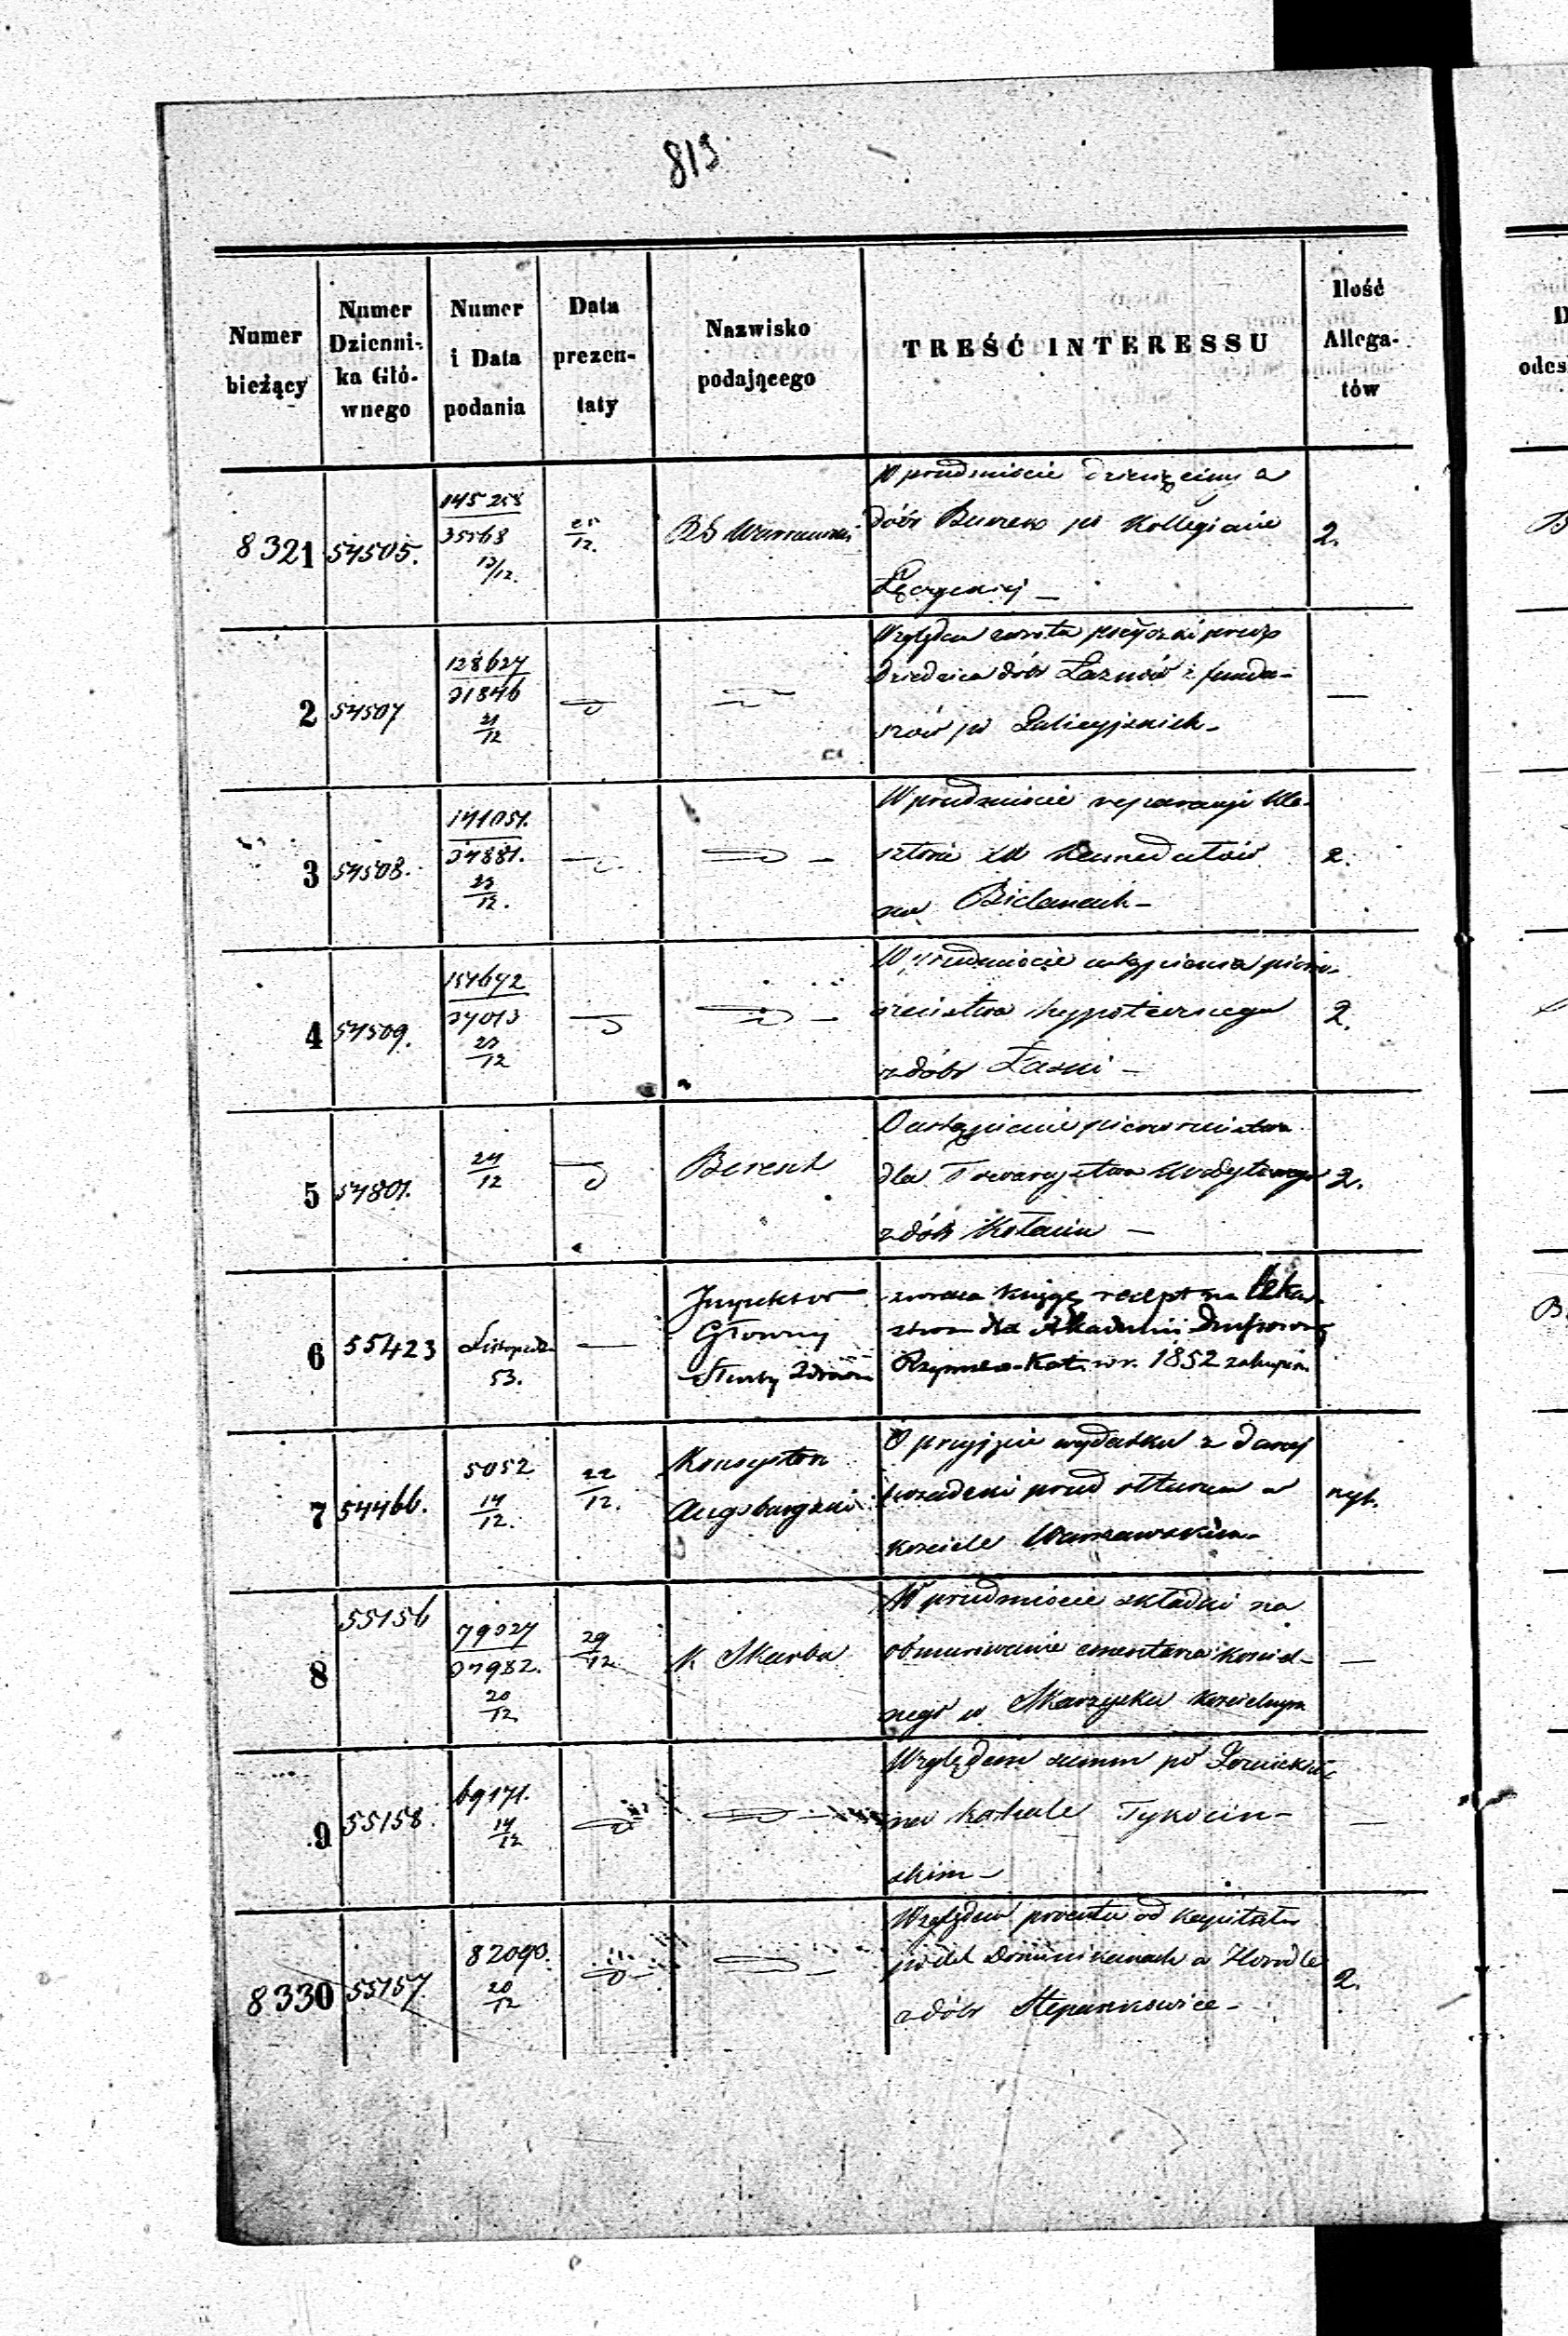 819
Numer bieżący
Numer Dzienni-ka Głó-wnego
Numer i Data podania
Data prezen-taty
Nazwisko podającego
TREŚĆ INTERESSU
Ilość Allega-tów
8321 54505. 145258 35568 12/12. 21/12. Warszawski
W przedmiocie dziesięciny z
dóbr po Kollegiacie
Łęczyckiej —
2.
2 54507 128627 31846 21/12
Względem zwrotu pożyczki przez
Dziedzica dóbr Łaznów z fundu-
szów po Galicyjskich —
—
3 54508. 141051. 34881. 23/12.
W przedmiocie reparacji kla-
sztoru XX Kamedułów
na Bielanach —
2.
4 54509. 154672 37013 23/12
W przedmiocie ustąpienia pierw-
szeństwa hypotecznego
z dóbr Łazni —
2.
5 54801. 24/12 Berent
O ustąpienie pierwszeństwa
dla Towarzystwa Kredytowego
z dóbr Kołacin —
2.
6 55423 Listopada 53. —
Inspektor
Główny
Służby Zdrowia
zwraca księgę recept na lekar-
stwa dla Akademii Duchownej
Rzymsko-Kat. w r. 1852 zakupione
7 54466. 5052 14/12. 22/12.
Konsystorz
Augsburgski
O przyjęcie wydatku z
posadzki przed ołtarzem w
kościele Warszawskim —
8 55156 79027 37982. 20/12 29/12 K Skarbu
W przedmiocie składki na
obmurowanie cmentarza kościel-
nego w Skarzysku Kościelnym
—
9 55158. 69171. 14/12
Względem summ po
na kahale Tykociń-
skim —
—
8330 55157 82090. 20/12
Względem procentu od kapitału
po XX Dominikanach w Horodle
z dóbr Stepankowice —
2.